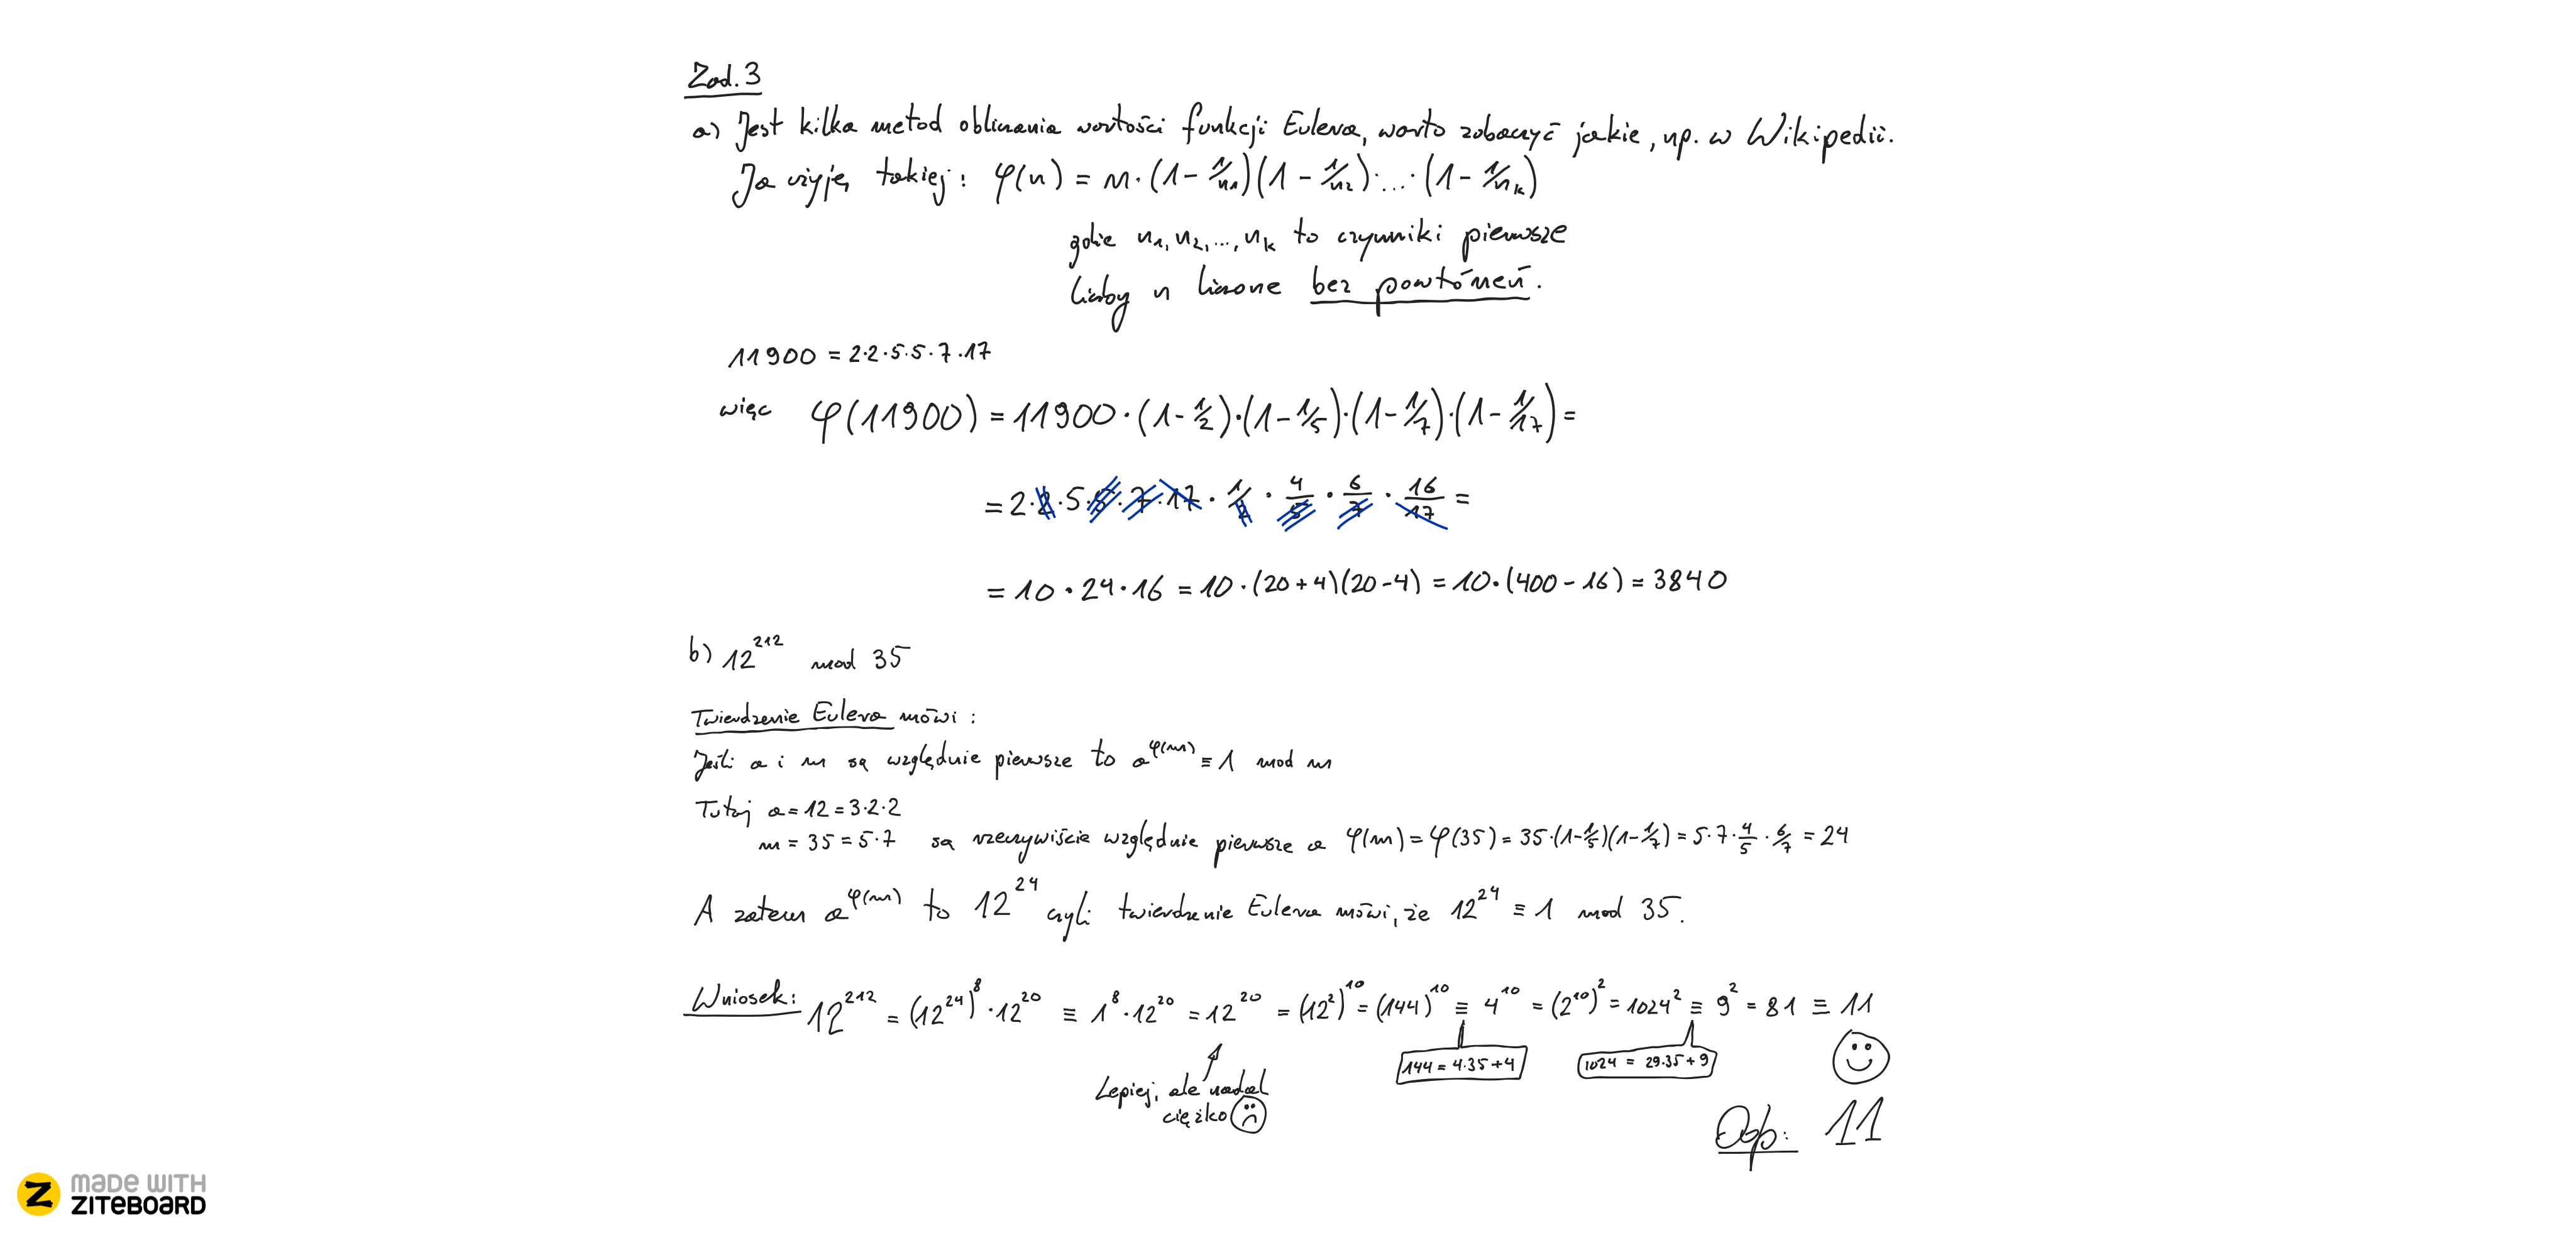 Zad. 3
a) Jest kilka metod obliczania wartości funkcji Eulera, warto zobaczyć jakie, np. w Wikipedii.
Ja użyję takiej: φ(n) = n·(1 - 1/n₁)(1 - 1/n₂)·...·(1 - 1/nₖ)
gdzie n₁, n₂, ..., nₖ to czynniki pierwsze
liczby n liczone bez powtórzeń.
11900 = 2·2·5·5·7·17
więc φ(11900) = 11900·(1 - 1/2)·(1 - 1/5)·(1 - 1/7)·(1 - 1/17) =
= 2·2·5·5·7·17 · 1/2 · 4/5 · 6/7 · 16/17 =
= 10·24·16 = 10·(20+4)(20-4) = 10·(400-16) = 3840
b) 12²¹² mod 35
Twierdzenie Eulera mówi:
Jeśli a i m są względnie pierwsze to a^φ(m) ≡ 1 mod m
Tutaj a = 12 = 3·2·2
m = 35 = 5·7 są rzeczywiście względnie pierwsze a φ(m) = φ(35) = 35·(1-1/5)(1-1/7) = 5·7·4/5·6/7 = 24
A zatem a^φ(m) to 12²⁴ czyli twierdzenie Eulera mówi, że 12²⁴ ≡ 1 mod 35.
Wniosek: 12²¹² = (12²⁴)⁸·12²⁰ ≡ 1⁸·12²⁰ = 12²⁰ = (12²)¹⁰ = (144)¹⁰ ≡ 4¹⁰ = (2¹⁰)² = 1024² ≡ 9² = 81 ≡ 11
144 = 4·35+4
1024 = 29·35+9
Lepiej, ale nadal
ciężko
Odp: 11
MADE WITH
ZITEBOARD